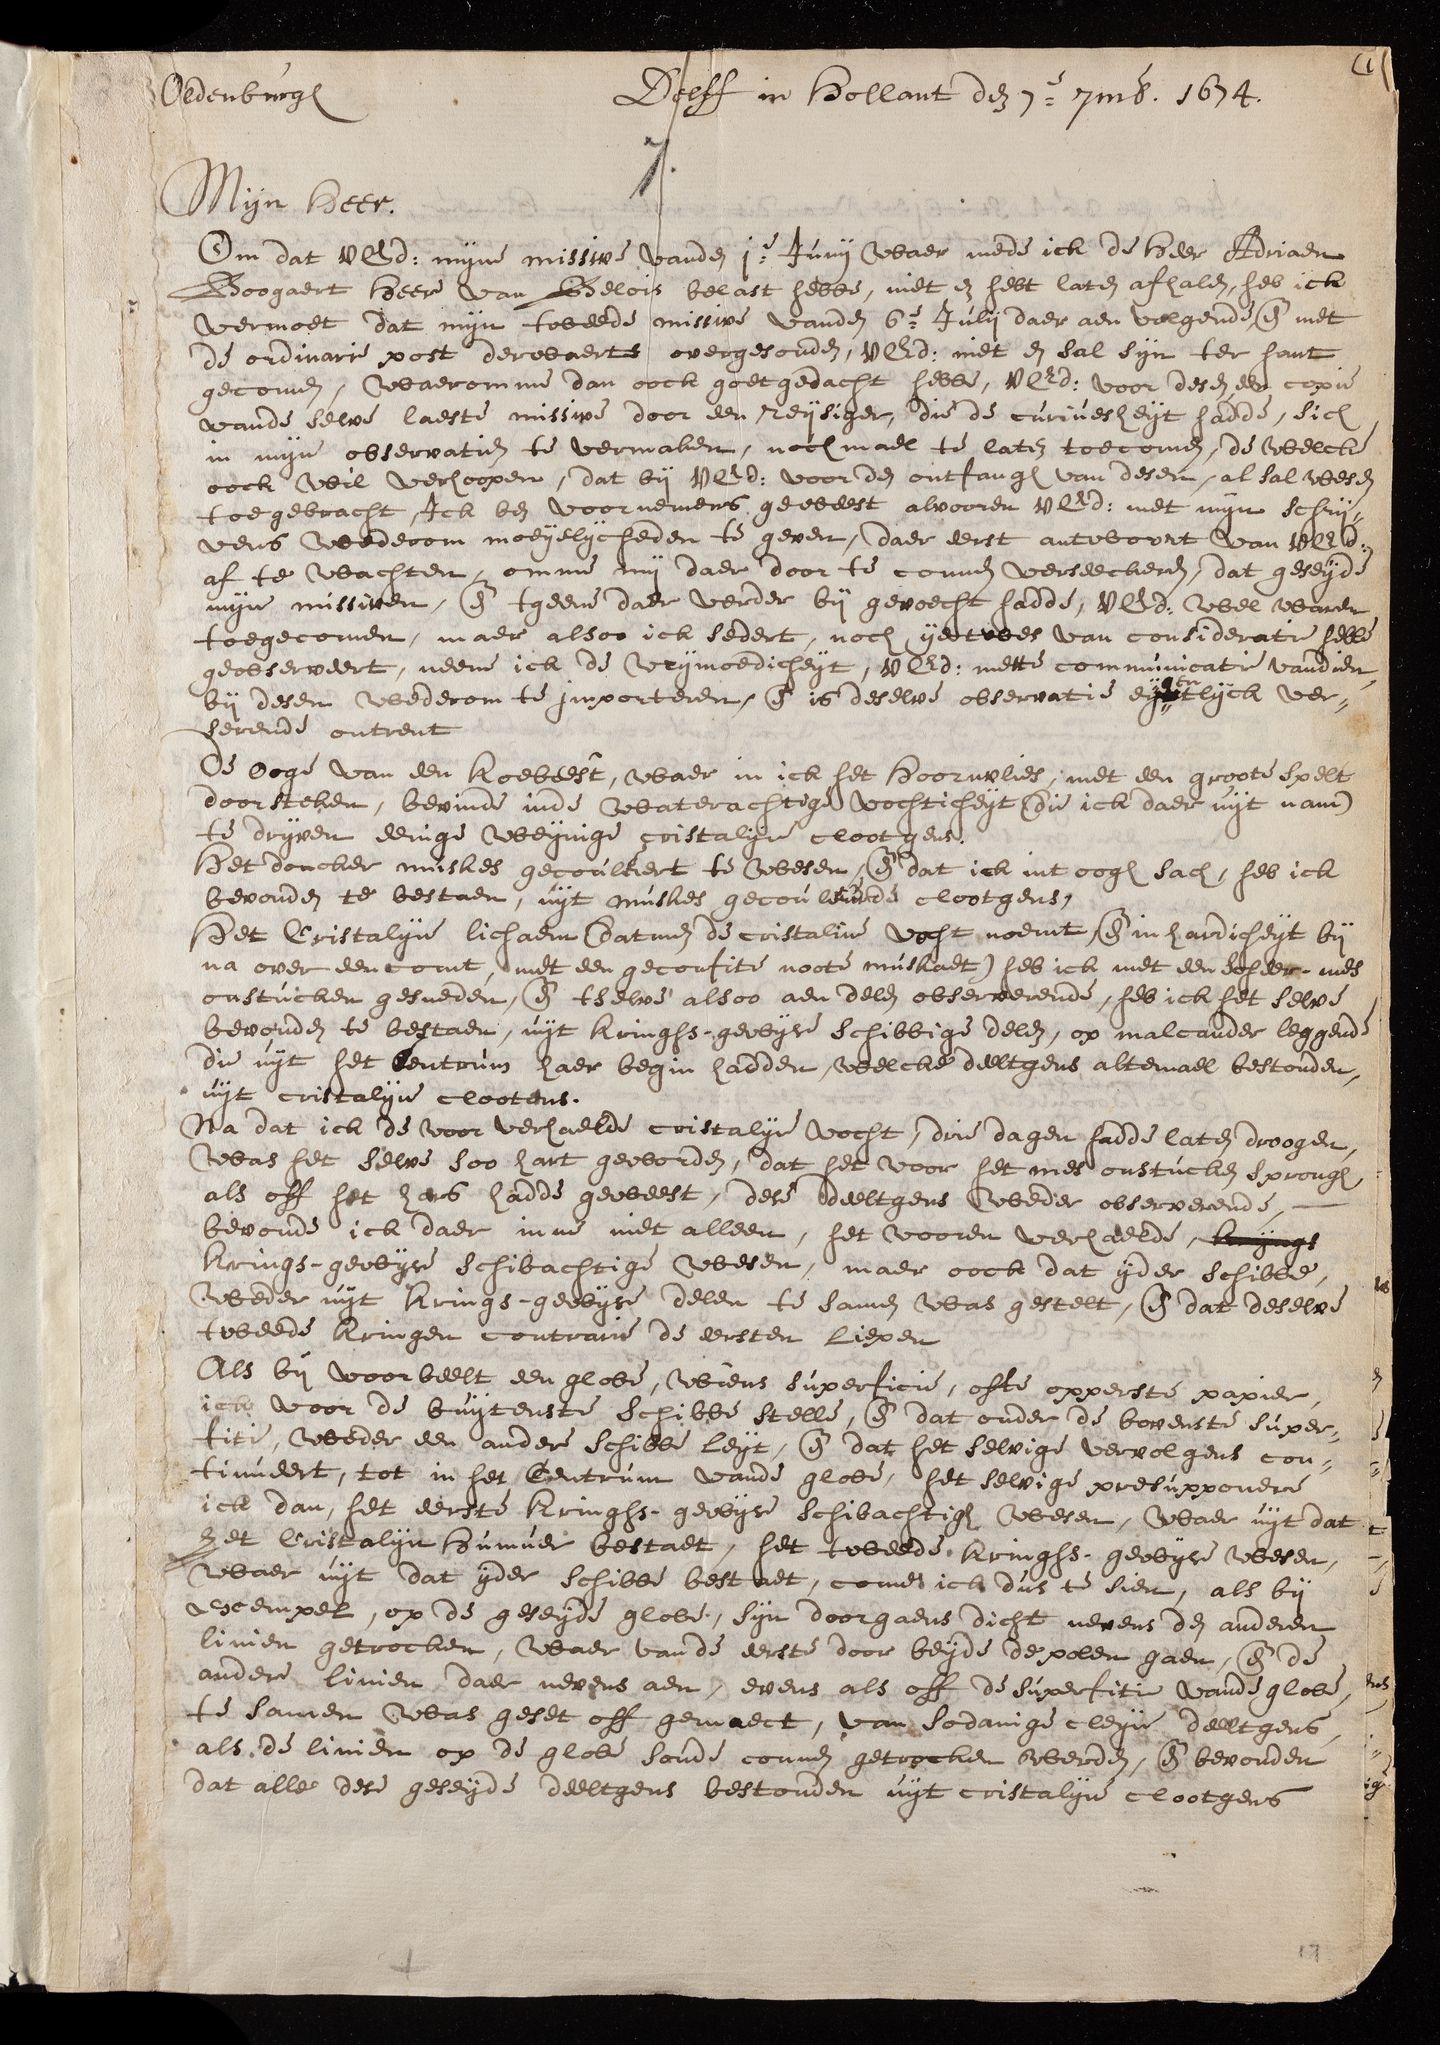 (1)
Oldenburg
Delff in Hollant den 7e 7mb. 1674.
7.
Mijn Heer.
Om dat UEd: mijne missive vanden 1e Junij waer mede ick de Heer Adriaen
Boogaert Heer van Belois belast hebbe, niet en hebt laten afhalen, heb ick
vermoet dat mijn tweede missive vanden 6e Julij daer aen volgende, en met
de ordinarie post derwaerts overgesonden, UEd: niet en sal sijn ter hant
gecomen, waeromme dan oock goetgedacht hebbe, UEd: voor desen een copie
vande selve laeste missive door een reijsiger, die de curieusheyt hadde, sich
in mijn observatien te vermaken, nochmael te laten toecomen, de welcke
oock wil verhoopen, dat bij UEd: voor den ontfangh van desen, al sal wesen
toegebracht, Ick ben voornemens geweest alvooren UEd: met mijn schrij-
vens wederom moeijelijcheden te geven, daer eerst antwoort van UEd:
af te wachten, omme mij daer door te connen verseeckeren, dat geseijde
mijn missiven, en tgeene daer verder bij gevoecht hadde, UEd: wel waren
toegecomen, maer alsoo ick sedert, noch yetwes van consideratie hebbe
geobserveert, neeme ick de vrijmoedicheyt, UEd: mette communicatie vandien,
bij desen wederom te importeren, en is deselve observatie eygentlijck ver-
serende ontrent
De ooge van een koebeest, waer in ick het hoornvlies, met een groote spelt
doorsteken, bevinde inde waterachtige vochticheyt (die ick daer uijt nam)
te drijven eenige weijnige cristalijne clootgens.
Het doncker muskes gecouleert te wesen, en dat ick int oogh sach, heb ick
bevonden te bestaen, uijt muskes gecouleurde clootgens,
Het Cristalijn lichaem (datmen de cristaline vocht noemt, en in hardicheyt bij
na over een comt, met een geconfite noote muskaet) heb ick met een scheer-mes
onstucken gesneden, en tselve alsoo aen delen observerende, heb ick het selve
bevonden te bestaen, uijt kringhs-gewijse schibbige delen, op malcander leggende
die uijt het Centrum haer begin hadden, welcke deeltgens altemael bestonden,
uijt cristalijne clootens.
Na dat ick de voor verhaelde cristalijne vocht, drie dagen hadde laten droogen,
was het selve soo hart geworden, dat het voor het mes onstucken sprongh,
als off het hars hadde geweest, dese deeltgens weder observerende,
bevonde ick daer inne niet alleen, het vooren verhaelde, krijngs
krings-gewijse schibachtige wesen, maer oock dat yder schibbe,
weder uijt krings-gewijse delen te samen was gestelt, en dat deselve
tweede kringen contrarie de eersten liepen
Als bij voorbeelt een globe, wiens superficie, ofte opperste papier,
ick voor de buijtenste schibbe stelle, en dat onder de bovenste super-
fitie, weder een ander schibbe leijt, en dat het selvige vervolgens con-
tinueert, tot in het Centrum vande globe, het selvige presupponere
ick dan, het eerste kringhs-gewijse schibachtigh wesen, waer uijt dat
het Cristalijn Humuer bestaet, het tweede kringhs-gewijse wesen,
waer uijt dat yder schibbe bestaet, comen ick dus te sien, als bij
exempel, op de geseijde globe, sijn doorgaens dicht nevens den anderen
linien getrocken, waer vande eerste door beijde de polen gaen, en de
andere linien daer nevens aen, evens als off de superfitie vande globe,
te samen was geset off gemaect, van sodanige cleijne deeltgens,
als de linien op de globe soude connen getrocken werden, en bevonden
dat alle dese geseijde deeltgens bestonden uijt cristalijne clootgens
17